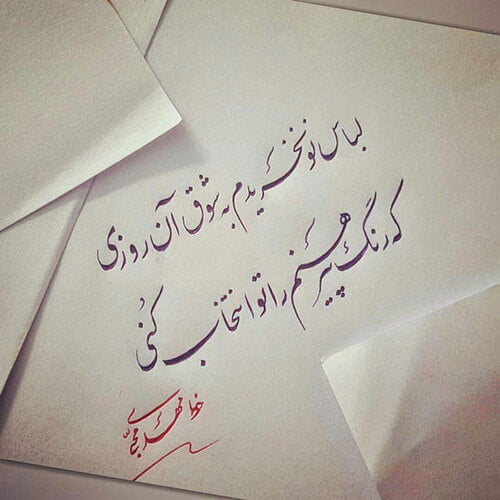 لباس نو نخریدم به شوق آن روزی
که رنگ پیرهنم را تو انتخاب کنی
مهدی